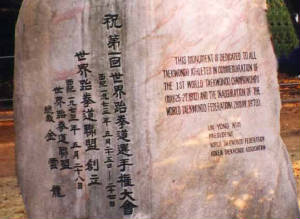 祝 第一回世界跆拳道選手權大會
西紀一九七三年 五月二十五日~二十七日
世界跆拳道聯盟 創立
西紀一九七三年 五月二十八日
世界跆拳道聯盟
總裁 金雲龍
THIS MONUMENT IS DEDICATED TO ALL
TAEKWONDO ATHLETES IN COMMEMORATION OF
THE 1ST WORLD TAEKWONDO CHAMPIONSHIPS
(MAY 25-27, 1973) AND THE INAUGURATION OF THE
WORLD TAEKWONDO FEDERATION (MAY 28, 1973)
UN YONG KIM
PRESIDENT
WORLD TAEKWONDO FEDERATION
KOREA TAEKWONDO ASSOCIATION